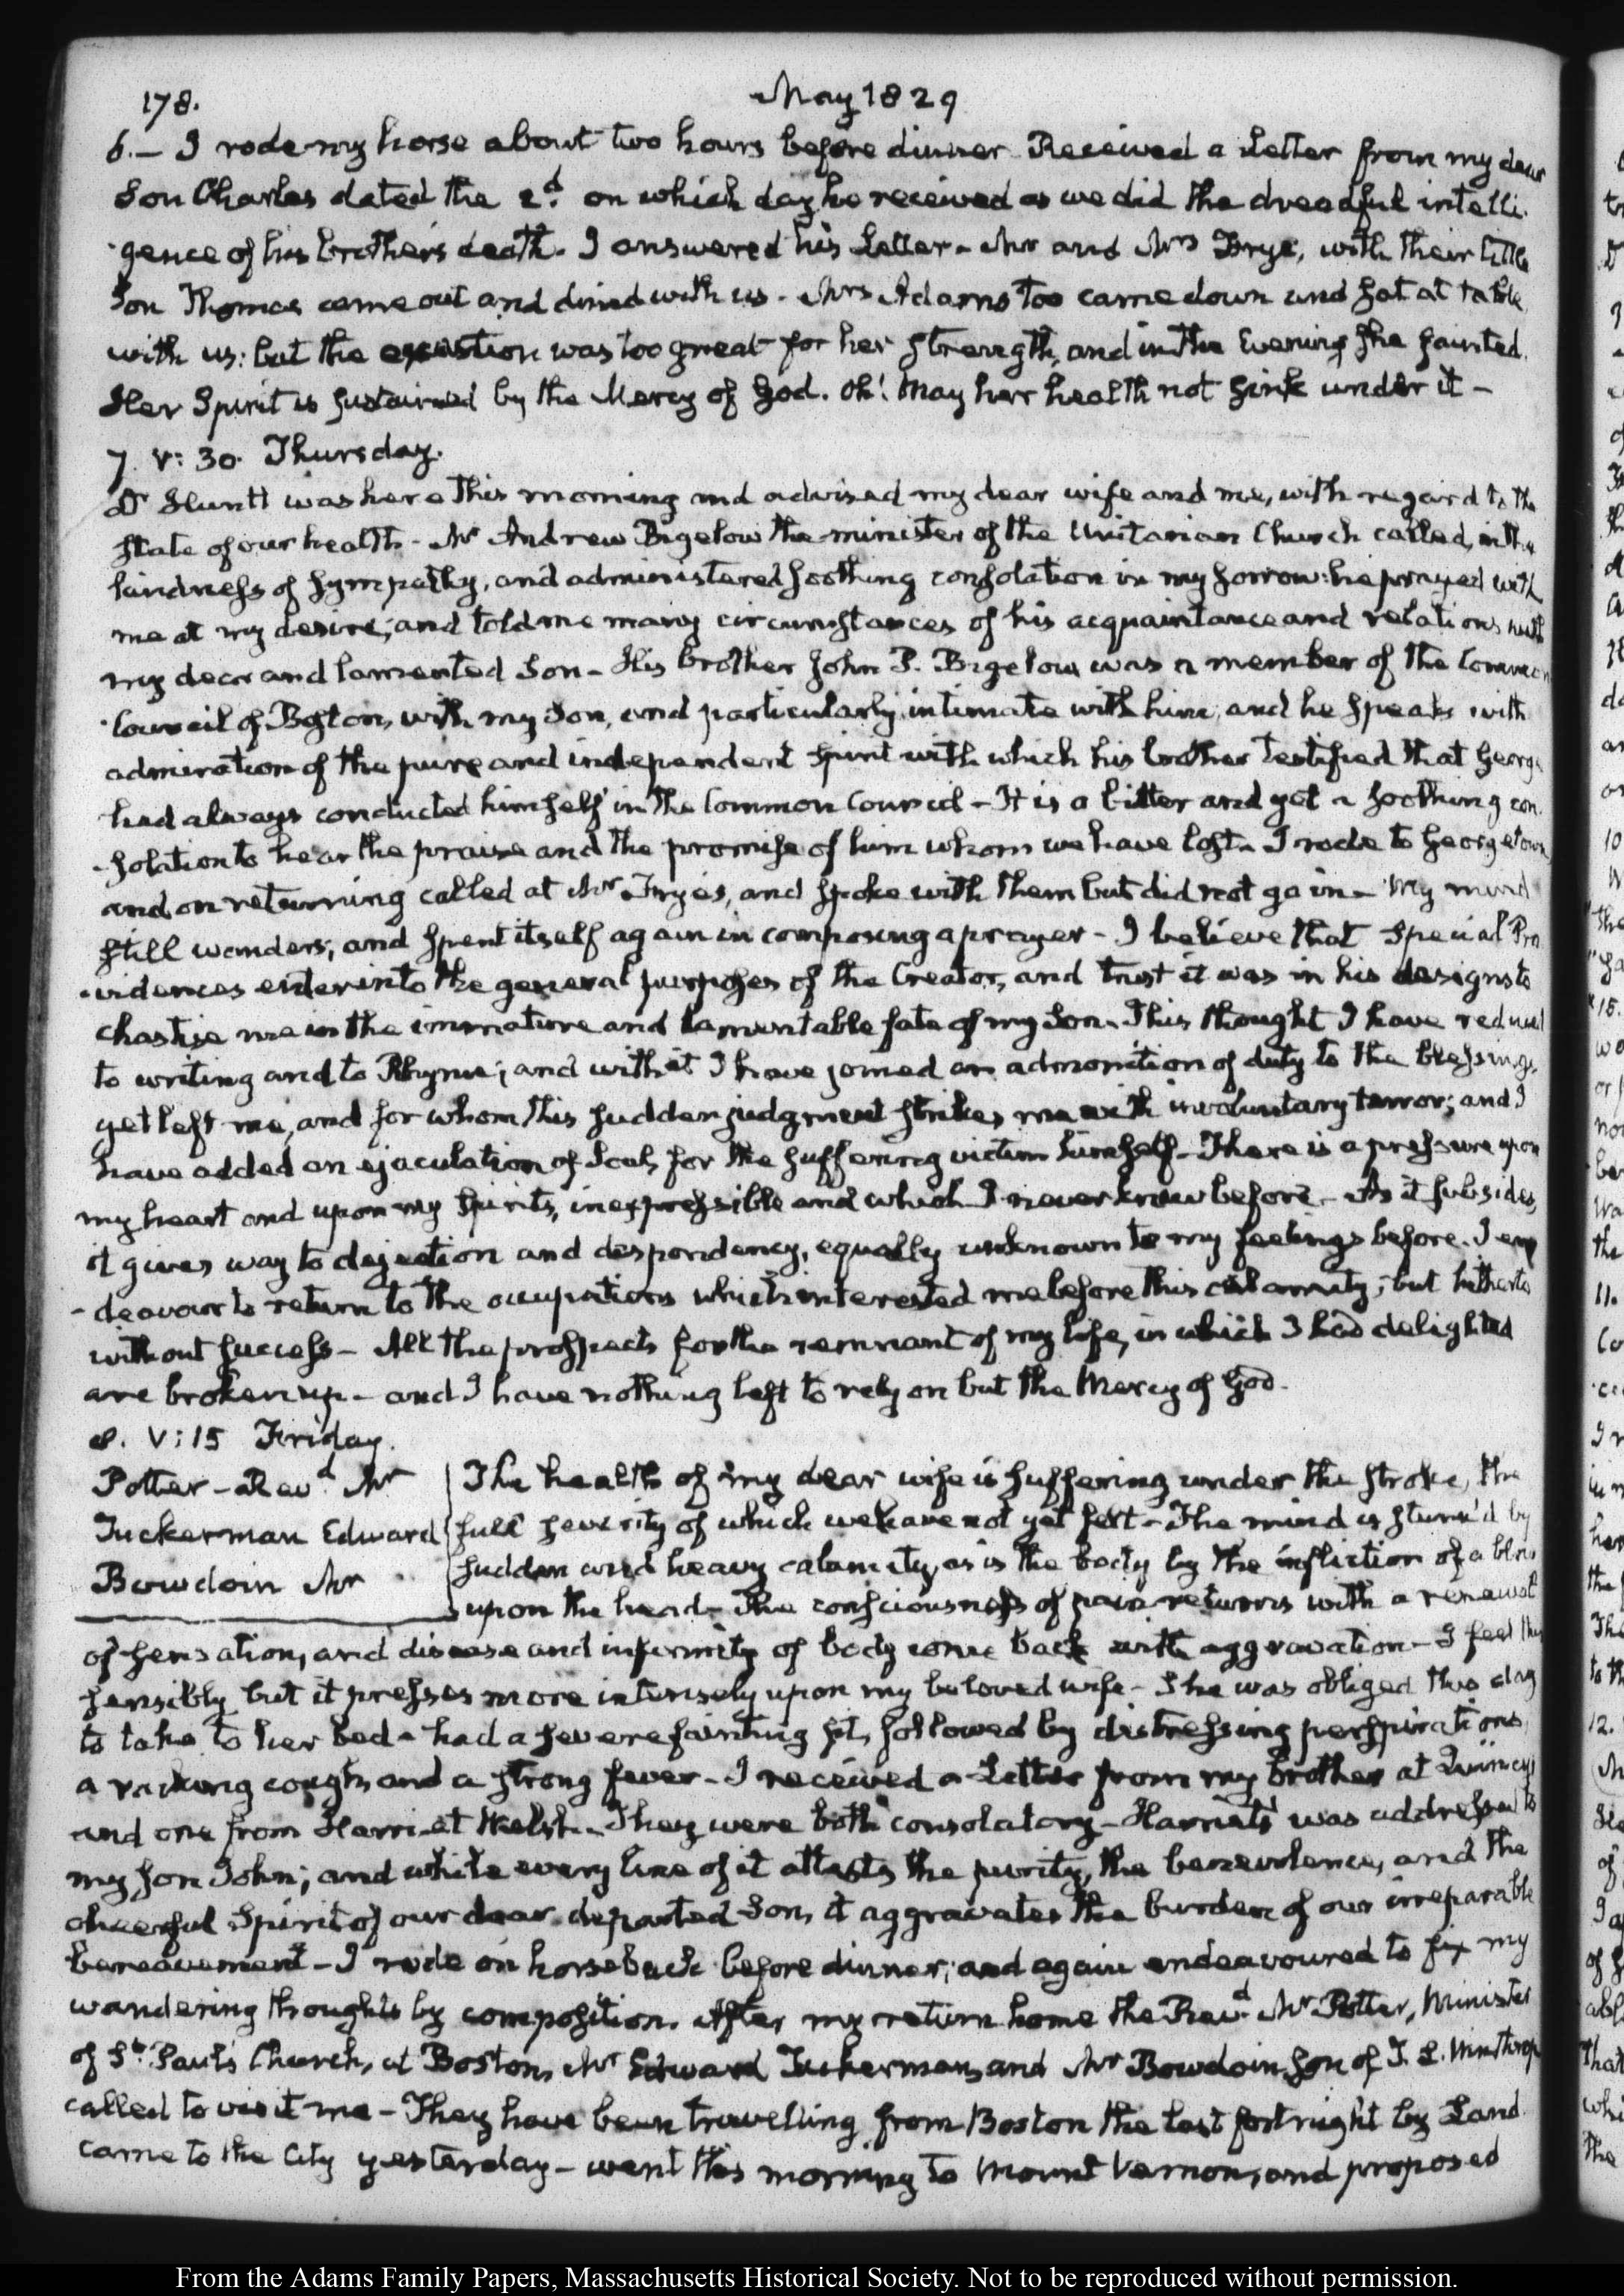 178.
May 1829
6.— I rode my horse about two hours before dinner. Received a Letter from my dear
Son Charles dated the 2.d on which day he received as we did the dreadful intelli-
-gence of his brother's death. I answered his Letter - Mr and Mrs Frye, with their little
Son Thomas came out and dined with us. Mrs Adams too came down and sat at table
with us: but the exertion was too great for her strength, and in the Evening she fainted.
Her Spirit is sustained by the Mercy of God. Oh! May her health not sink under it —
7. V: 30. Thursday.
Dr Huntt was here this morning and advised my dear wife and me, with regard to the
state of our health - Mr Andrew Bigelow the minister of the Unitarian Church called, in the
kindness of sympathy, and administered soothing consolation in my sorrow: he prayed with
me at my desire; and told me many circumstances of his acquaintance and relations with
my dear and lamented Son - His brother John P. Bigelow was a member of the Common
Council of Boston, with my Son, and particularly intimate with him, and he speaks with
admiration of the pure and independent spirit with which his brother testified that George
had always conducted himself in the Common Council - It is a bitter and yet a soothing con-
-solation to hear the praise and the promise of him whom we have lost. I rode to Georgetown
and on returning called at Mr Frye's, and spoke with them but did not go in - My mind
still wanders; and spent itself again in composing a prayer - I believe that Special Pro-
-vidences enter into the general purposes of the Creator, and trust it was in his designs to
chastise me in the immature and lamentable fate of my Son. This thought I have reduced
to writing and to Rhyme; and with it I have joined an admonition of duty to the blessings
yet left me, and for whom this sudden judgment strikes me with involuntary terror; and I
have added an ejaculation of Soul, for the suffering victim himself - There is a pressure upon
my heart and upon my Spirits, inexpressible and which I never knew before. - As it subsides,
it gives way to dejection and despondency, equally unknown to my feelings before. I en
-deavour to return to the occupations which interested me before this calamity; but hitherto
without success - All the prospects for the remnant of my life, in which I had delighted
are broken up - and I have nothing left to rely on but the Mercy of God.
8. V: 15 Friday.
Potter - Revd. Mr
Tuckerman Edward
Bowdoin Mr
The health of my dear wife is suffering under the stroke, the
full severity of which we have not yet felt - The mind is stunn'd by
sudden and heavy calamity, as is the body by the infliction of a blow
upon the head - The consciousness of pain returns with a renewal
of sensation, and disease and infirmity of body come back with aggravation - I feel this
sensibly but it presses more intensely upon my beloved wife - She was obliged this day
to take to her bed - had a severe fainting fit, followed by distressing perspirations,
a racking cough, and a strong fever - I received a Letter from my brother at Quincy,
and one from Harriet Welsh. They were both consolatory - Harriet's was addressed to
my son John; and while every line of it attests the purity, the benevolence, and the
cheerful Spirit of our dear departed Son, it aggravates the burden of our irreparable
bereavement - I rode on horseback before dinner; and again endeavoured to fix my
wandering thoughts by composition. After my return home the Revd. Mr Potter, Minister
of St. Paul's Church, at Boston, Mr Edward Tuckerman, and Mr Bowdoin, son of T. L. Winthrop
called to visit me - They have been travelling from Boston the last fortnight by Land.
came to the City yesterday - went this morning to Mount Vernon, and proposed
From the Adams Family Papers, Massachusetts Historical Society. Not to be reproduced without permission.